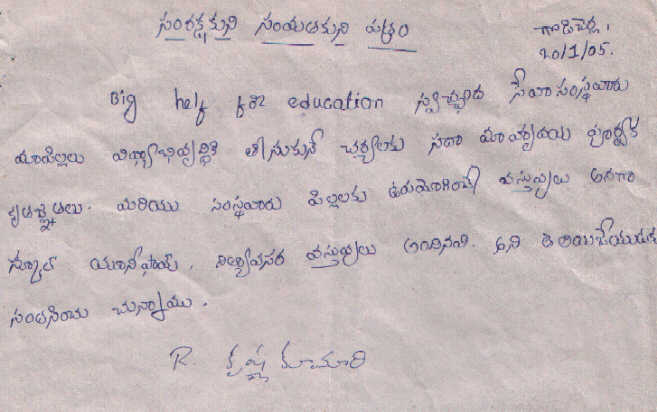 సంరక్షకుని సంయతకుని పత్రం
గాడిచెర్ల,
20/1/05.
Big help for education స్వచ్ఛంద సేవా సంస్థవారు
మాపిల్లలు విద్యాభివృద్ధికి తీసుకునే చర్యలకు సదా మా హృదయ పూర్వక
కృతజ్ఞతలు. మరియు సంస్థవారు పిల్లలకు ఉపయోగించే వస్తువులు అనగా
స్కూల్ యూనిఫామ్, నిత్యావసర వస్తువులు అందినవి. అని తెలియచేయుటకు
సంతసించు చున్నాము.
R. కృష్ణ కుమారి